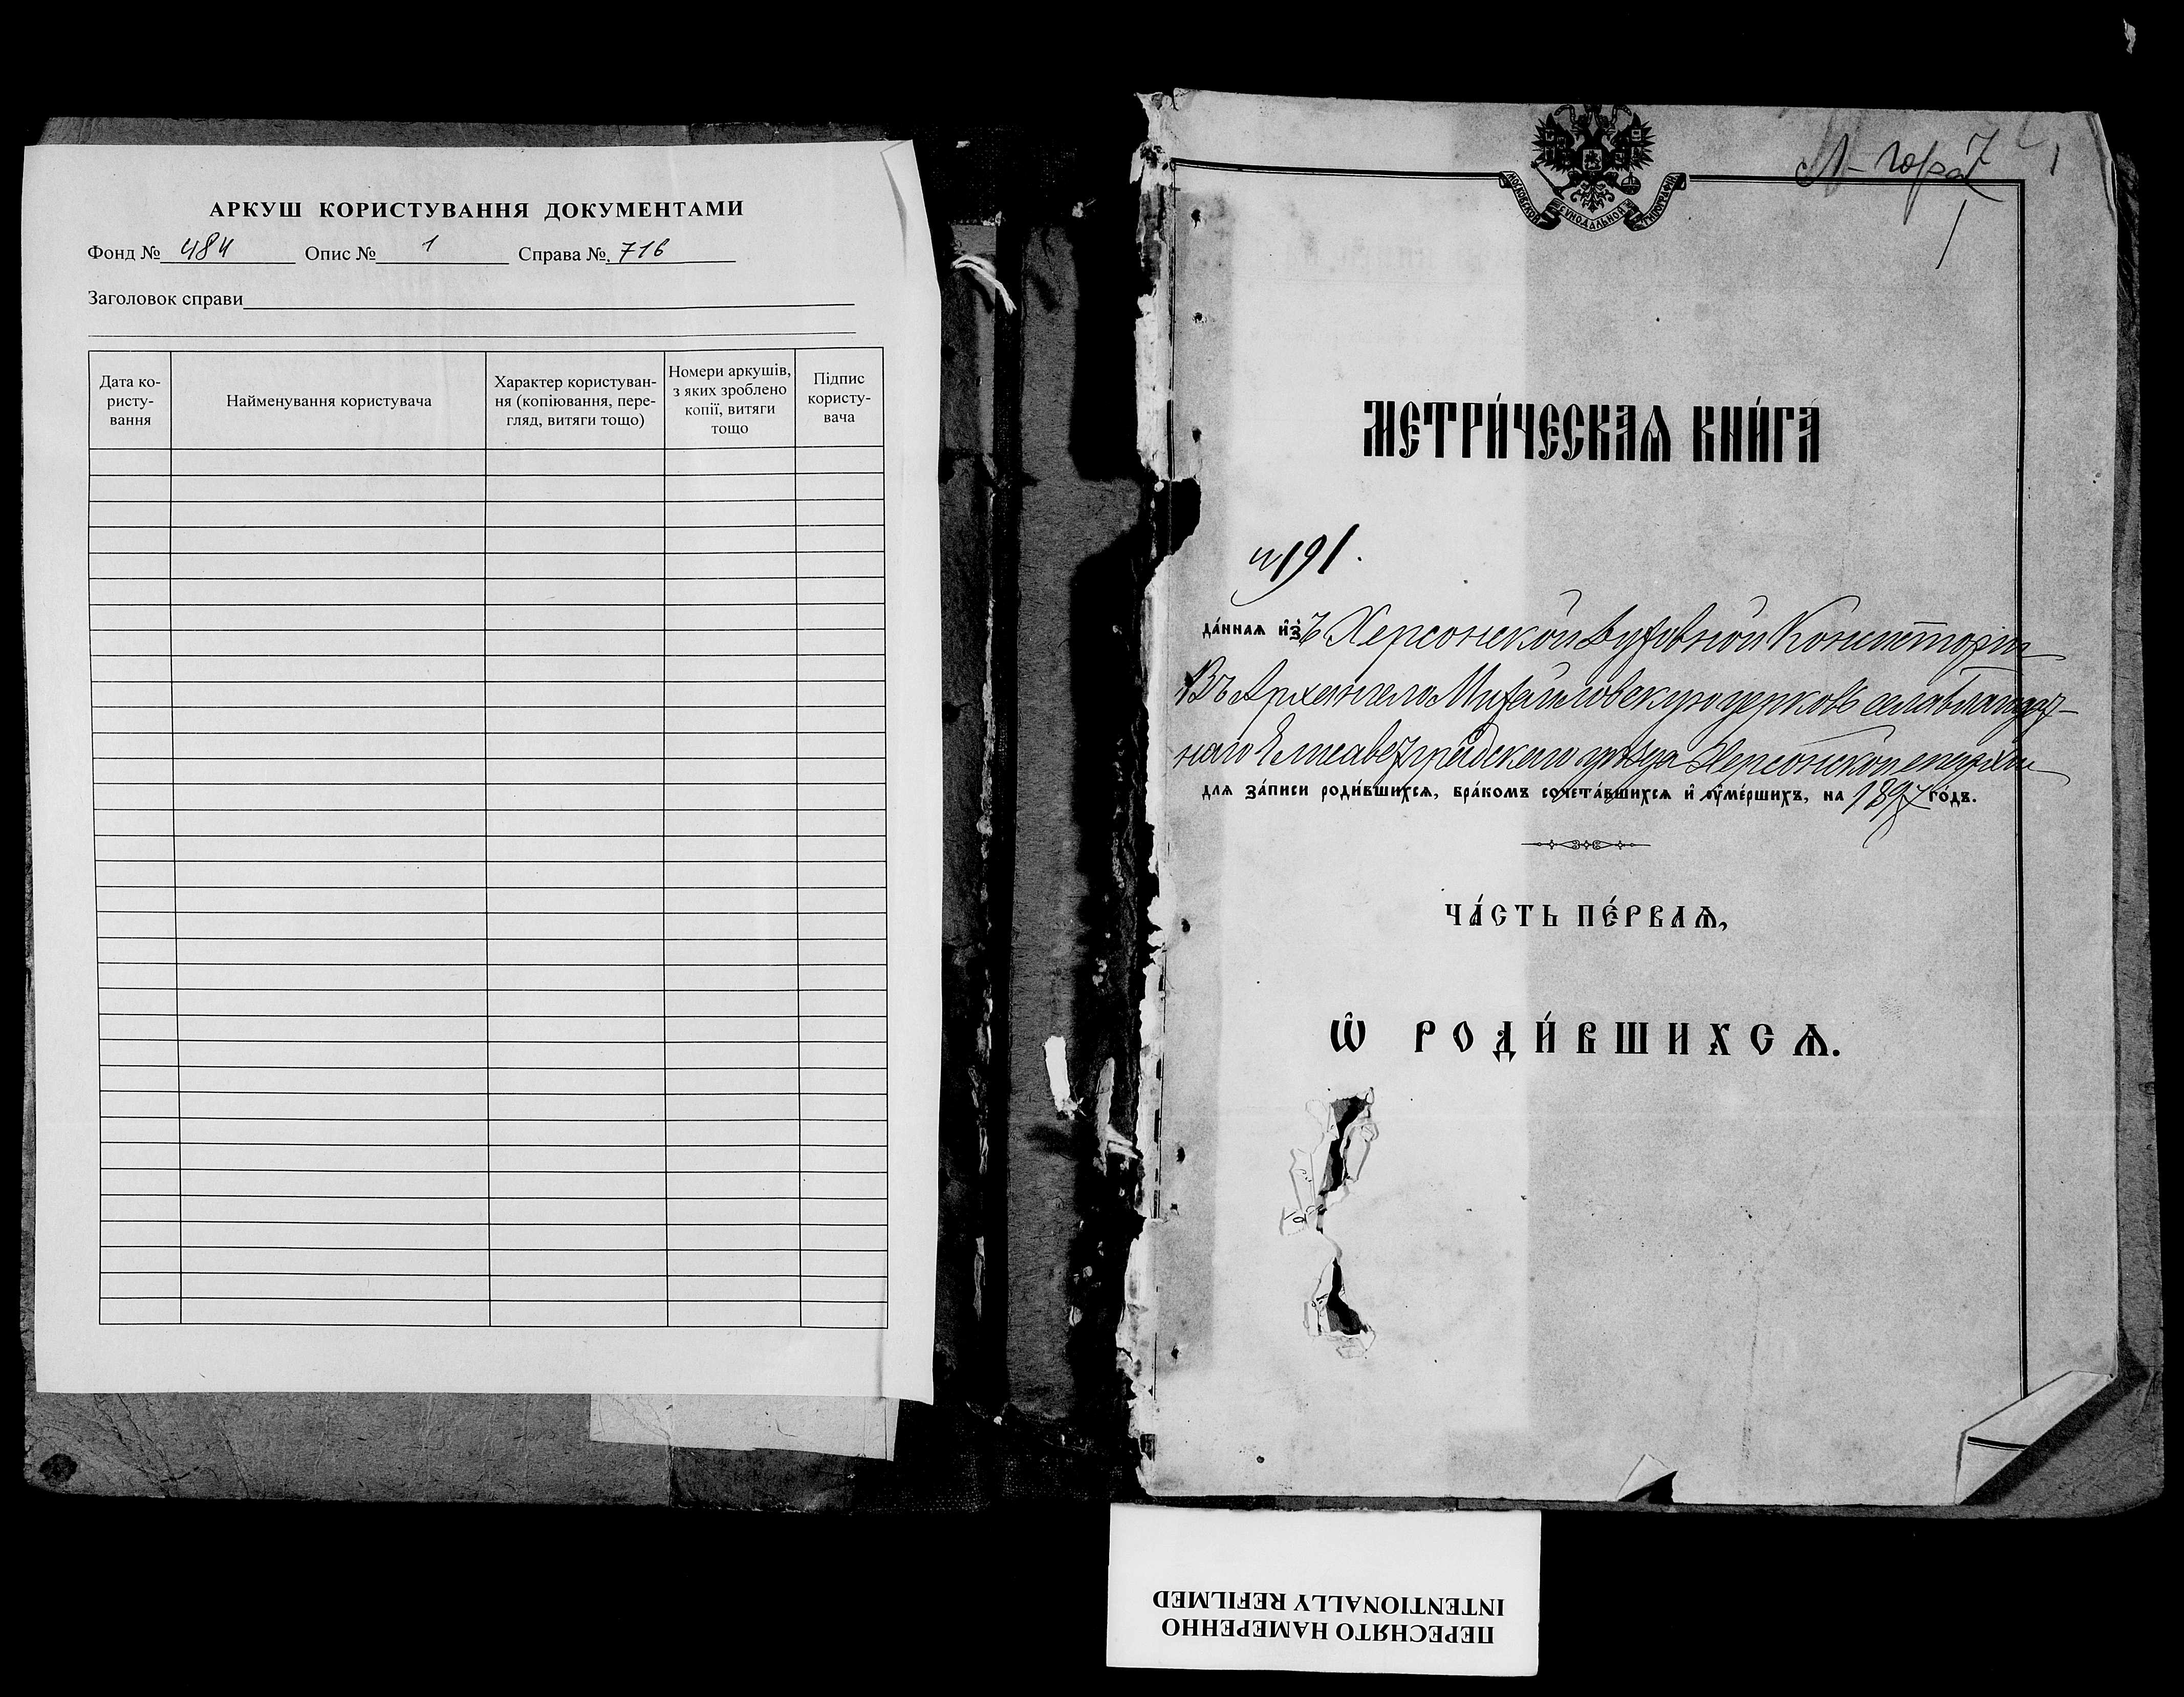 АРКУШ КОРИСТУВАННЯ ДОКУМЕНТАМИ
Фонд № 484 Опис № 1 Справа № 716
Заголовок справи
Дата ко-
ристу-
вання
Найменування користувача
Характер користуван-
ня (копіювання, пере-
гляд, витяги тощо)
Номери аркушів,
з яких зроблено
копії, витяги
тощо
Підпис
користу-
вача
МОСКОВСКОЙ СѴНОДАЛЬНОЙ ТИПОГРАФІИ
МЕТРИ́ЧЕСКАѦ КНИ́ГА
191.
да́ннаѧ и҆зъ Херсонской Духовной Консисторіи
Въ Архангело Михайловскую церковь села Благодат-
наго Елисаветградскаго уѣзда Херсонской епархіи
для за́писи роди́вшихсѧ, бра́комъ сочета́вшихсѧ и҆ ᲂу҆ме́ршихъ, на 1897 го́дъ.
ЧА́СТЬ ПЕ́РВАѦ,
Ѡ҆ РОДИ́ВШИХСѦ.
ПЕРЕСНЯТО НАМЕРЕННО
INTENTIONALLY REFILMED